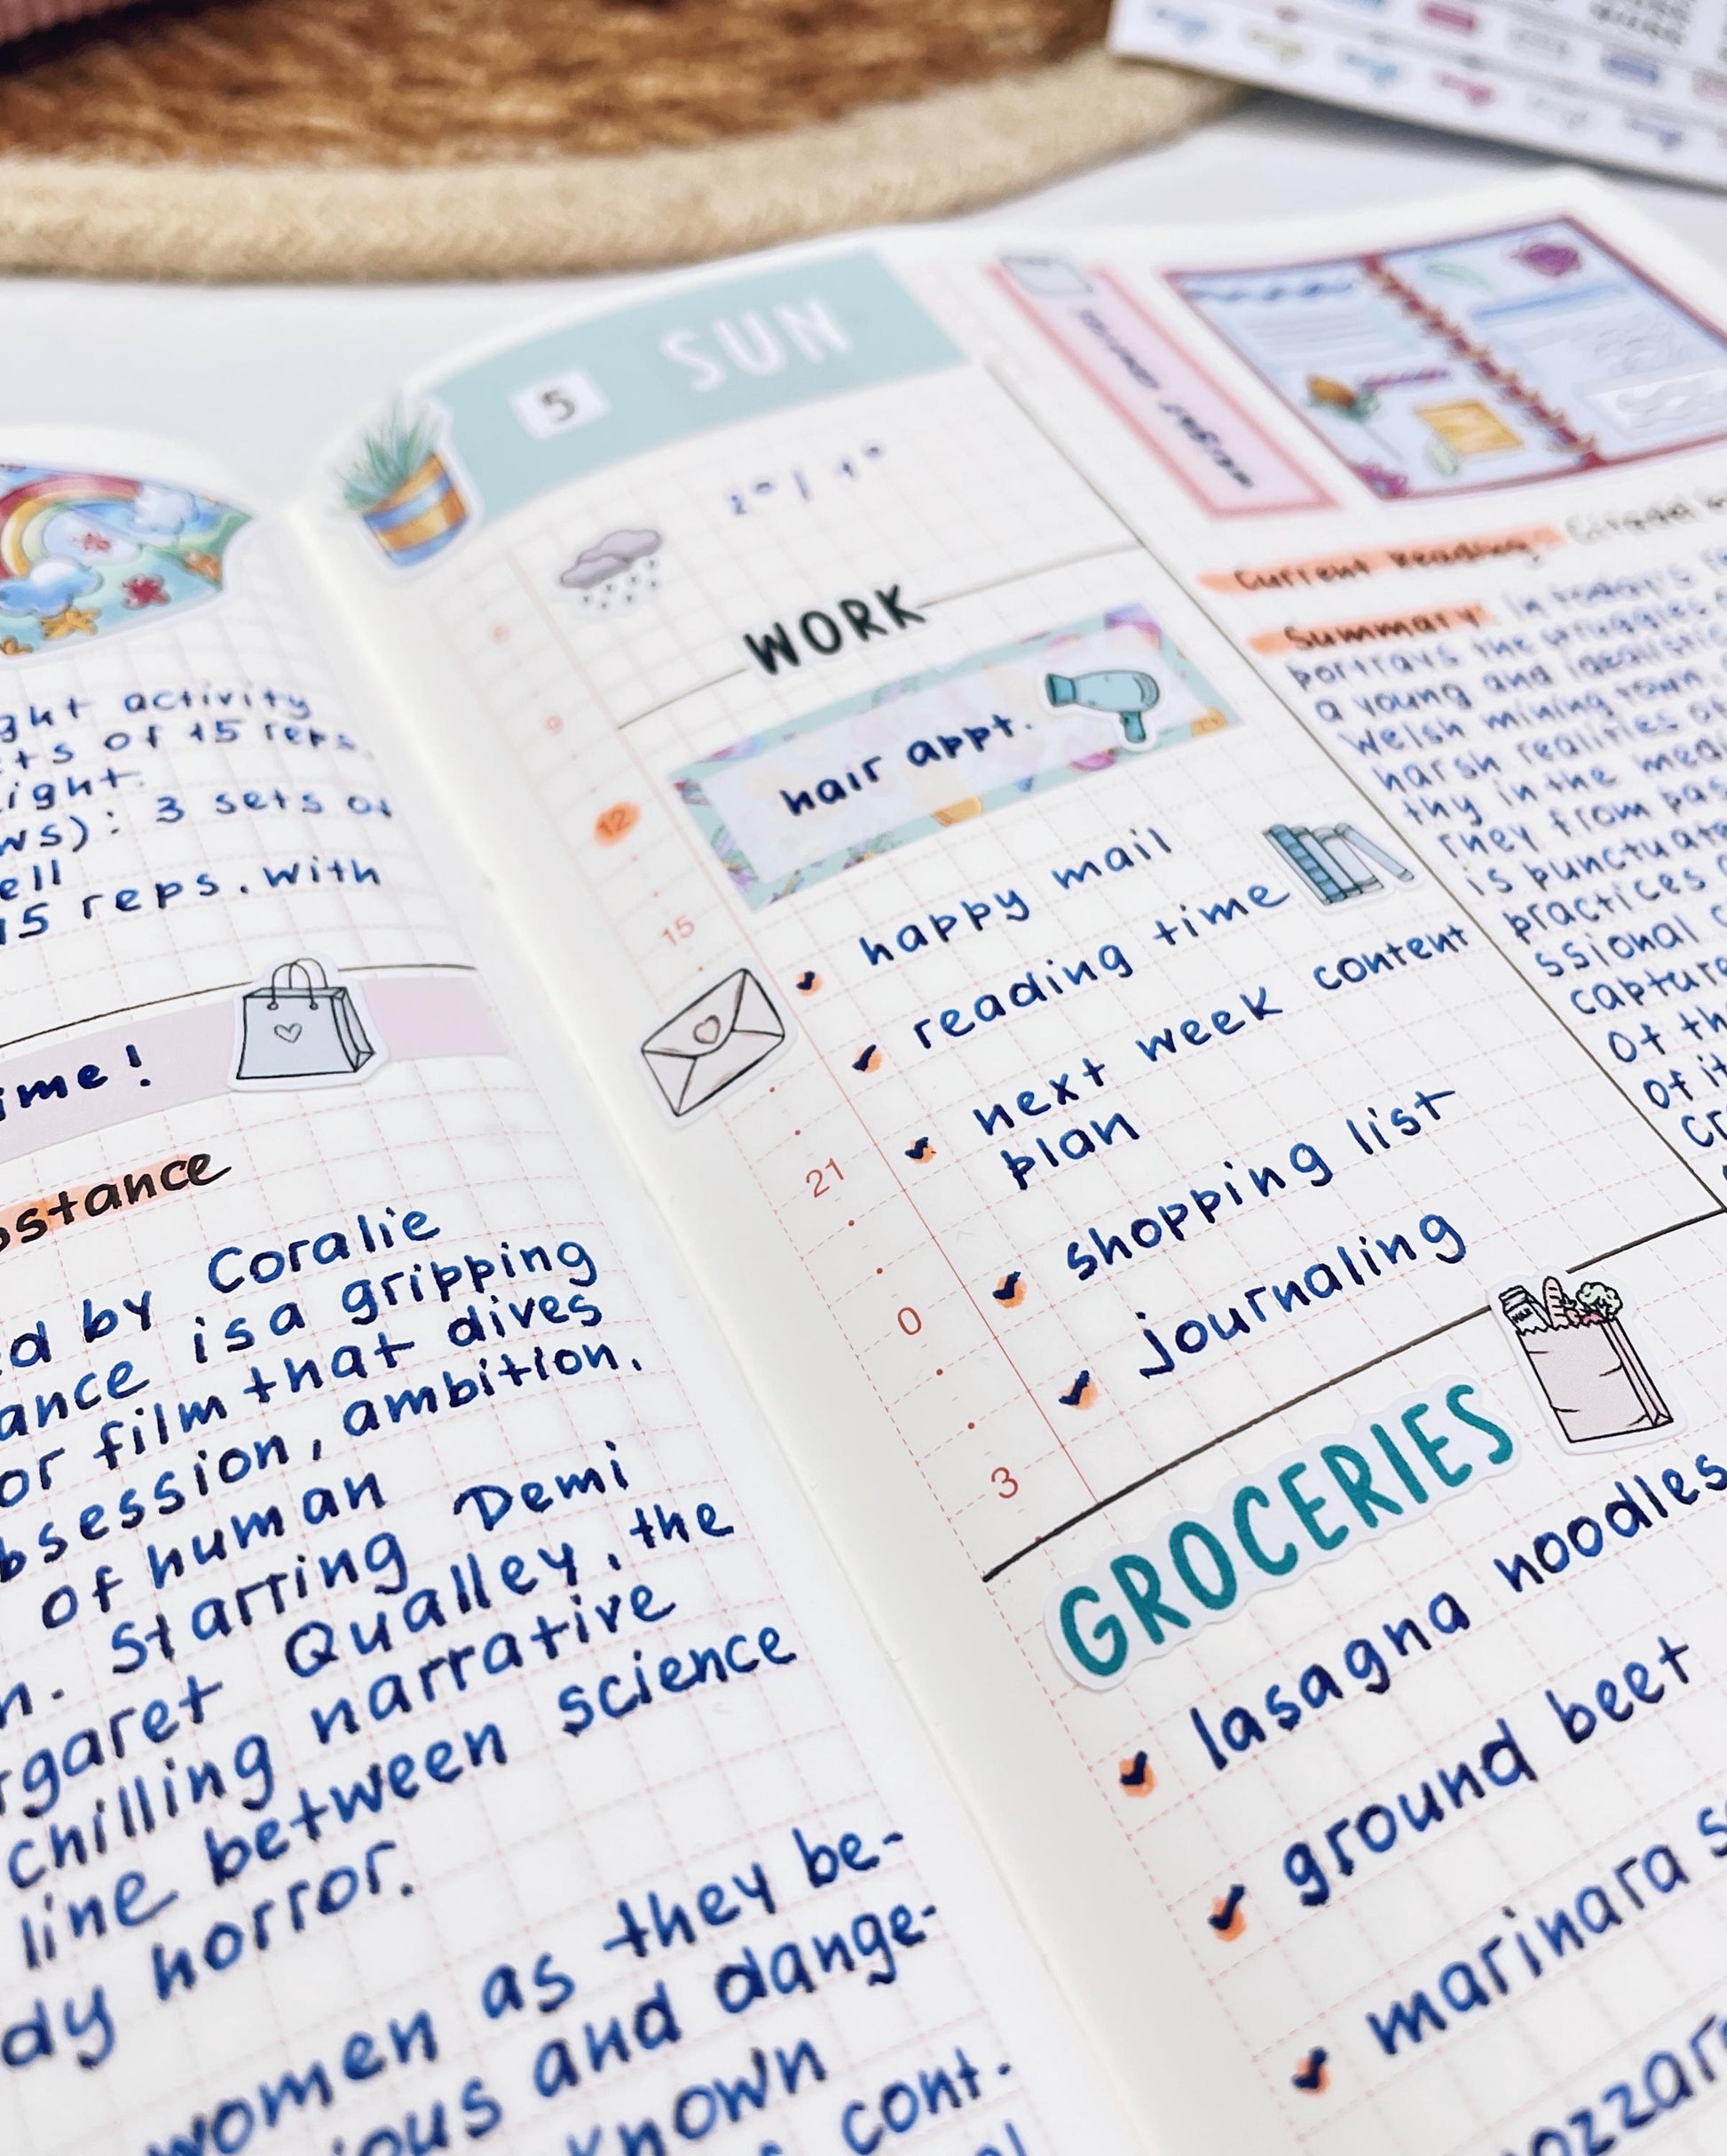 ght activity
ts of 15 reps
ight.
ws): 3 sets of
ell
15 reps. with
ime!
bstance
ed by Coralie
ance is a gripping
or film that dives
bsession, ambition,
of human
n. Starring Demi
rgaret Qualley, the
chilling narrative
line between science
dy horror.
women as they be-
ious and dange-
known
cont.
5 SUN
WORK
hair appt.
9
12
15
21
0
3
happy mail
reading time
next week content
plan
shopping list
journaling
GROCERIES
lasagna noodles
ground beef
marinara s
ozzar
Current Reading: Citadel
Summary: In today's
portrays the struggles
a young and idealistic
Welsh mining town.
harsh realities of
thy in the medi
rney from pas
is punctuate
practices
ssional c
capture
of th
of it
cr